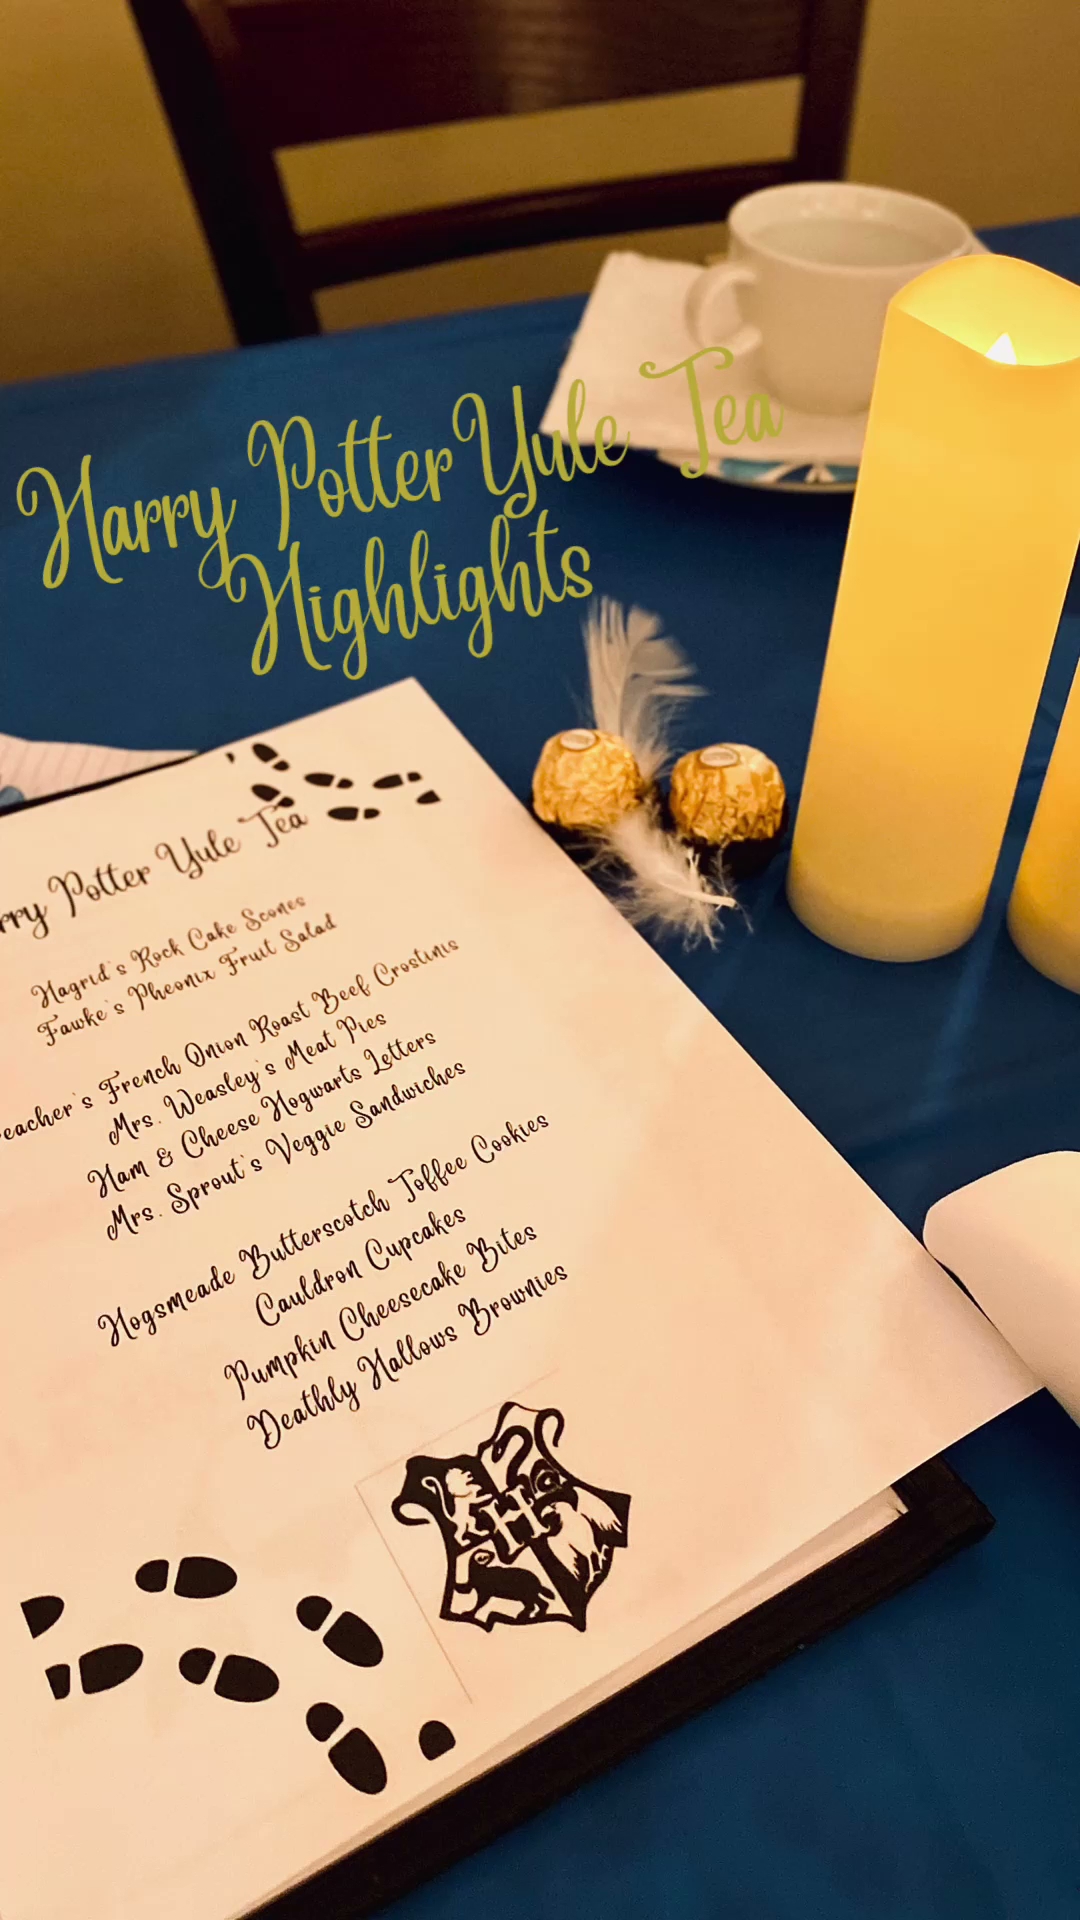 Harry Potter Yule Tea
Highlights
Potter Yule Tea
Hagrid's Rock Cake Scones
Fawke's Pheonix Fruit Salad
French Onion Roast Beef Crostinis
Mrs. Weasley's Meat Pies
Ham & Cheese Hogwarts Letters
Mrs. Sprout's Veggie Sandwiches
Hogsmeade Butterscotch Toffee Cookies
Cauldron Cupcakes
Pumpkin Cheesecake Bites
Deathly Hallows Brownies
H